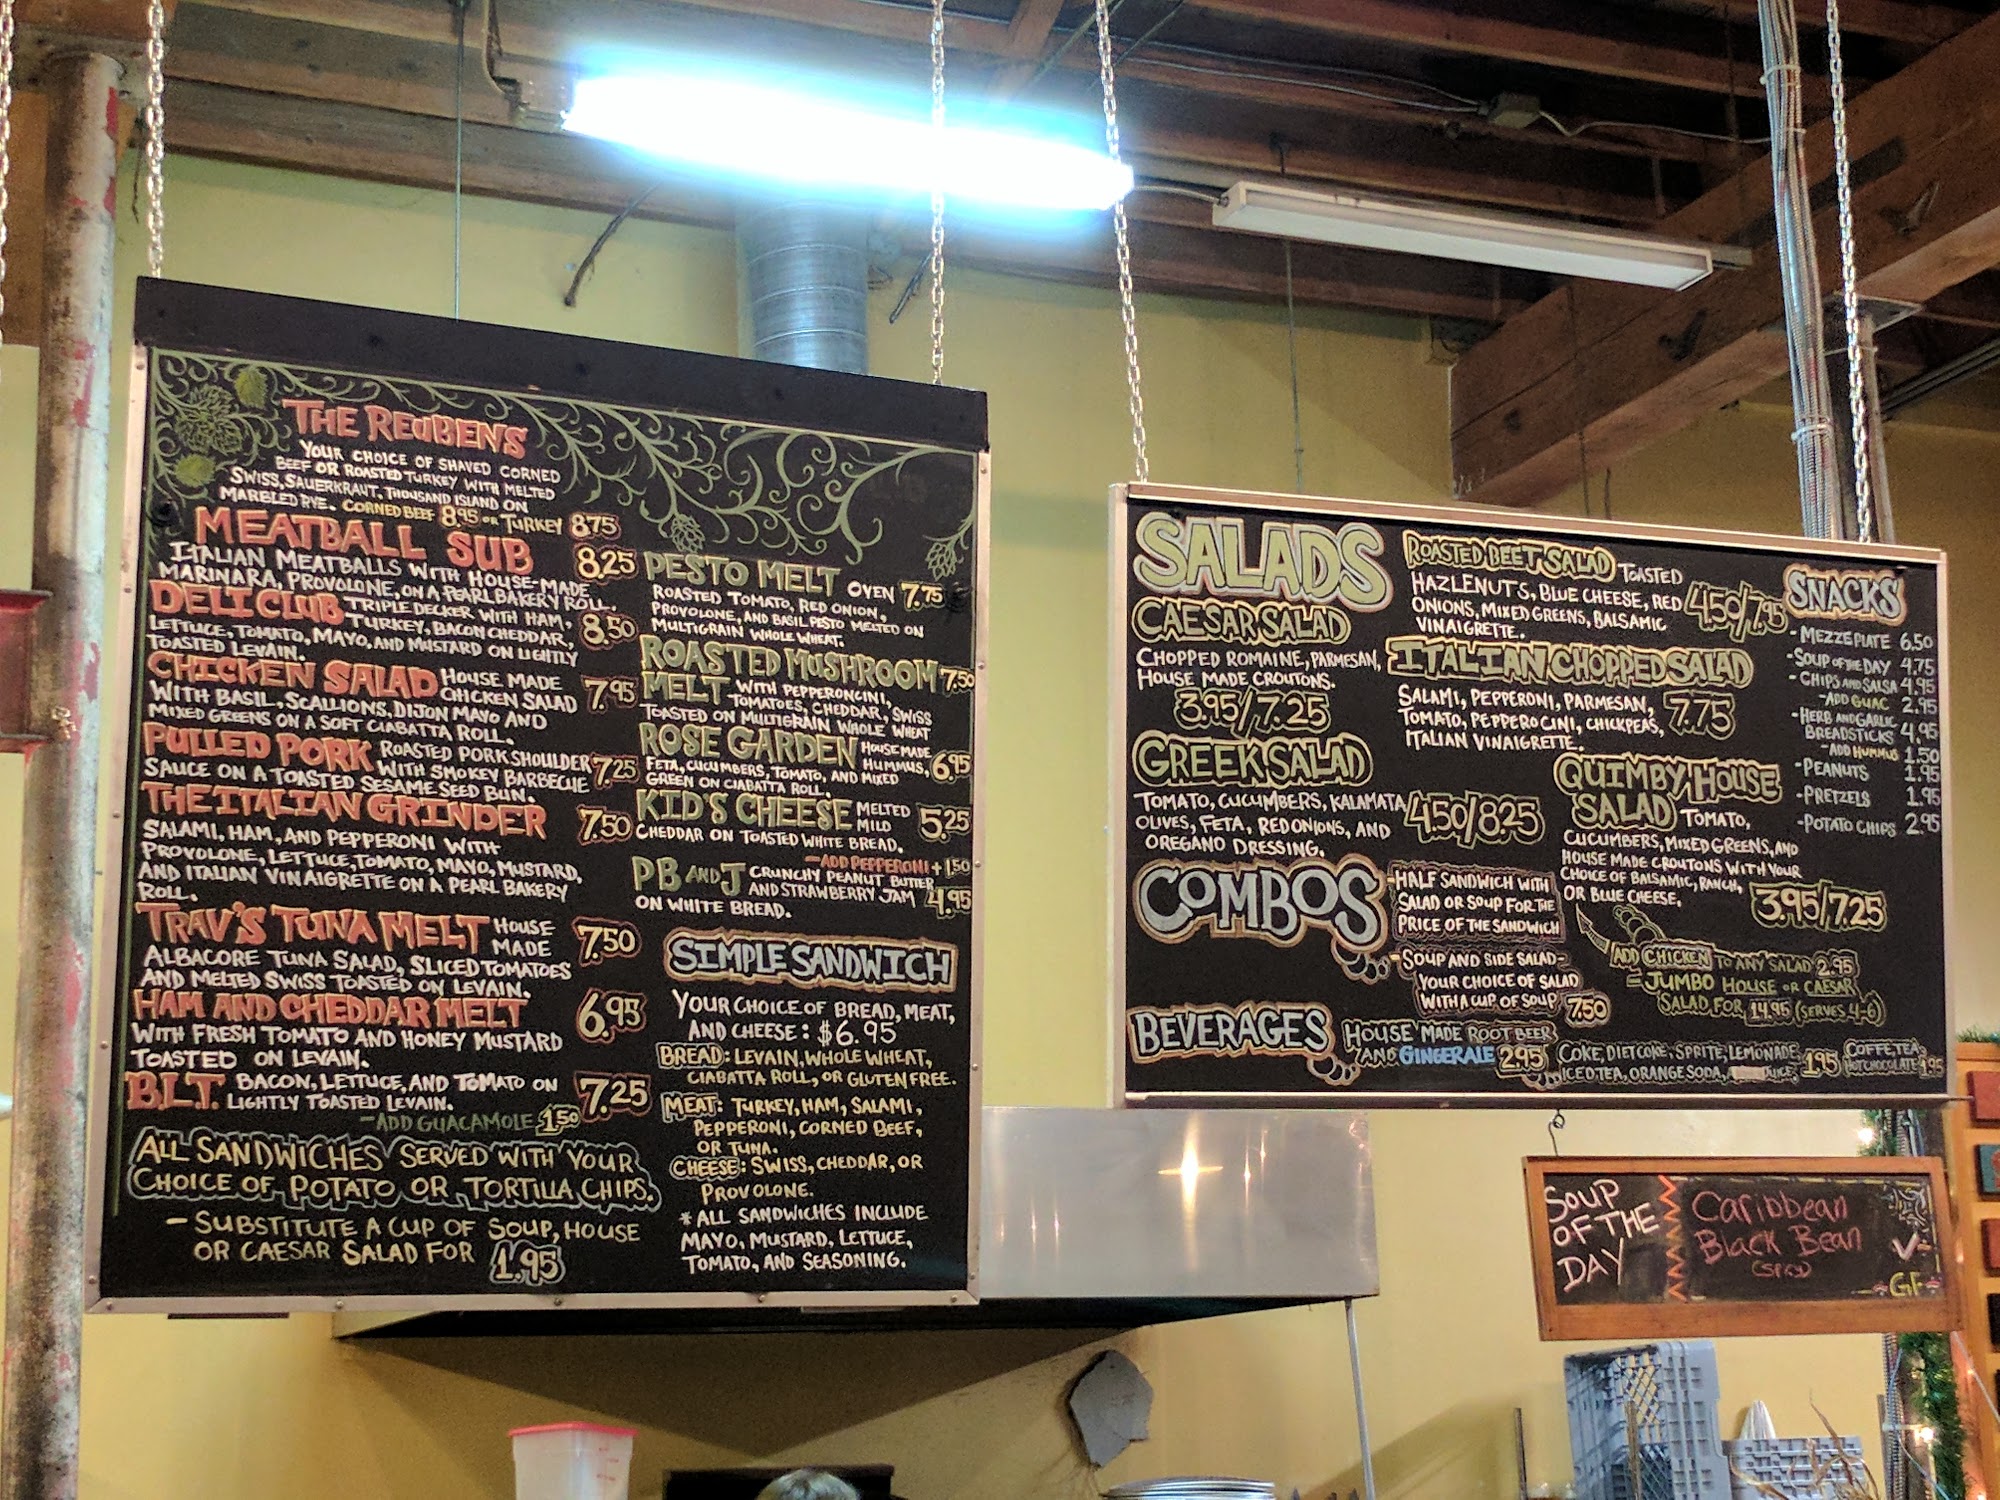 THE REUBENS
YOUR CHOICE OF SHAVED CORNED
BEEF OR ROASTED TURKEY WITH MELTED
SWISS, SAUERKRAUT, THOUSAND ISLAND ON
MARBLED RYE. CORNED BEEF 8.95 OR TURKEY 8.75
MEATBALL SUB 8.25
ITALIAN MEATBALLS WITH HOUSE-MADE
MARINARA, PROVOLONE, ON A PEARL BAKERY ROLL.
DELI CLUB TRIPLE DECKER WITH HAM,
TURKEY, BACON CHEDDAR, 8.50
LETTUCE, TOMATO, MAYO, AND MUSTARD ON LIGHTLY
TOASTED LEVAIN.
CHICKEN SALAD HOUSE MADE
CHICKEN SALAD 7.95
WITH BASIL, SCALLIONS, DIJON MAYO AND
MIXED GREENS ON A SOFT CIABATTA ROLL.
PULLED PORK ROASTED PORK SHOULDER
WITH SMOKEY BARBECUE 7.25
SAUCE ON A TOASTED SESAME SEED BUN.
THE ITALIAN GRINDER 7.50
SALAMI, HAM, AND PEPPERONI WITH
PROVOLONE, LETTUCE, TOMATO, MAYO, MUSTARD,
AND ITALIAN VINAIGRETTE ON A PEARL BAKERY
ROLL.
TRAV'S TUNA MELT HOUSE
MADE 7.50
ALBACORE TUNA SALAD, SLICED TOMATOES
AND MELTED SWISS TOASTED ON LEVAIN.
HAM AND CHEDDAR MELT 6.95
WITH FRESH TOMATO AND HONEY MUSTARD
TOASTED ON LEVAIN.
B.L.T. BACON, LETTUCE, AND TOMATO ON
LIGHTLY TOASTED LEVAIN. 7.25
-ADD GUACAMOLE 1.50
ALL SANDWICHES SERVED WITH YOUR
CHOICE OF POTATO OR TORTILLA CHIPS.
- SUBSTITUTE A CUP OF SOUP, HOUSE
OR CAESAR SALAD FOR 1.95
PESTO MELT OVEN 7.75
ROASTED TOMATO, RED ONION,
PROVOLONE, AND BASIL PESTO MELTED ON
MULTIGRAIN WHOLE WHEAT.
ROASTED MUSHROOM 7.50
MELT WITH PEPPERONCINI,
TOMATOES, CHEDDAR, SWISS
TOASTED ON MULTIGRAIN WHOLE WHEAT
ROSE GARDEN HOUSE MADE
HUMMUS, 6.95
FETA, CUCUMBERS, TOMATO, AND MIXED
GREEN ON CIABATTA ROLL.
KID'S CHEESE MELTED
MILD 5.25
CHEDDAR ON TOASTED WHITE BREAD.
-ADD PEPPERONI + 1.50
PB AND J CRUNCHY PEANUT BUTTER
AND STRAWBERRY JAM 4.95
ON WHITE BREAD.
SIMPLE SANDWICH
YOUR CHOICE OF BREAD, MEAT,
AND CHEESE: $6.95
BREAD: LEVAIN, WHOLE WHEAT,
CIABATTA ROLL, OR GLUTEN FREE.
MEAT: TURKEY, HAM, SALAMI,
PEPPERONI, CORNED BEEF,
OR TUNA.
CHEESE: SWISS, CHEDDAR, OR
PROVOLONE.
*ALL SANDWICHES INCLUDE
MAYO, MUSTARD, LETTUCE,
TOMATO, AND SEASONING.
SALADS
CAESAR SALAD
CHOPPED ROMAINE, PARMESAN,
HOUSE MADE CROUTONS.
3.95/7.25
GREEK SALAD
TOMATO, CUCUMBERS, KALAMATA
OLIVES, FETA, RED ONIONS, AND 4.50/8.25
OREGANO DRESSING.
ROASTED BEET SALAD TOASTED
HAZLENUTS, BLUE CHEESE, RED
ONIONS, MIXED GREENS, BALSAMIC 4.50/7.95
VINAIGRETTE.
ITALIAN CHOPPED SALAD
SALAMI, PEPPERONI, PARMESAN,
TOMATO, PEPPEROCINI, CHICKPEAS, 7.75
ITALIAN VINAIGRETTE.
QUIMBY HOUSE
SALAD TOMATO,
CUCUMBERS, MIXED GREENS, AND
HOUSE MADE CROUTONS WITH YOUR
CHOICE OF BALSAMIC, RANCH,
OR BLUE CHEESE. 3.95/7.25
ADD CHICKEN TO ANY SALAD 2.95
- JUMBO HOUSE OR CAESAR
SALAD FOR 14.95 (SERVES 4-6)
SNACKS
- MEZZE PLATE 6.50
- SOUP OF THE DAY 4.75
- CHIPS AND SALSA 4.95
-ADD GUAC 2.95
- HERB AND GARLIC
BREADSTICKS 4.95
-ADD HUMMUS 1.50
- PEANUTS 1.95
- PRETZELS 1.95
- POTATO CHIPS 2.95
COMBOS
- HALF SANDWICH WITH
SALAD OR SOUP FOR THE
PRICE OF THE SANDWICH
- SOUP AND SIDE SALAD-
YOUR CHOICE OF SALAD
WITH A CUP OF SOUP 7.50
BEVERAGES
HOUSE MADE ROOT BEER
AND GINGERALE 2.95
COKE, DIET COKE, SPRITE, LEMONADE,
ICED TEA, ORANGE SODA, JUICE, 1.95
COFFEE, TEA,
HOT CHOCOLATE 1.95
SOUP
OF THE
DAY
Caribbean
Black Bean
(SPICY)
V
GF